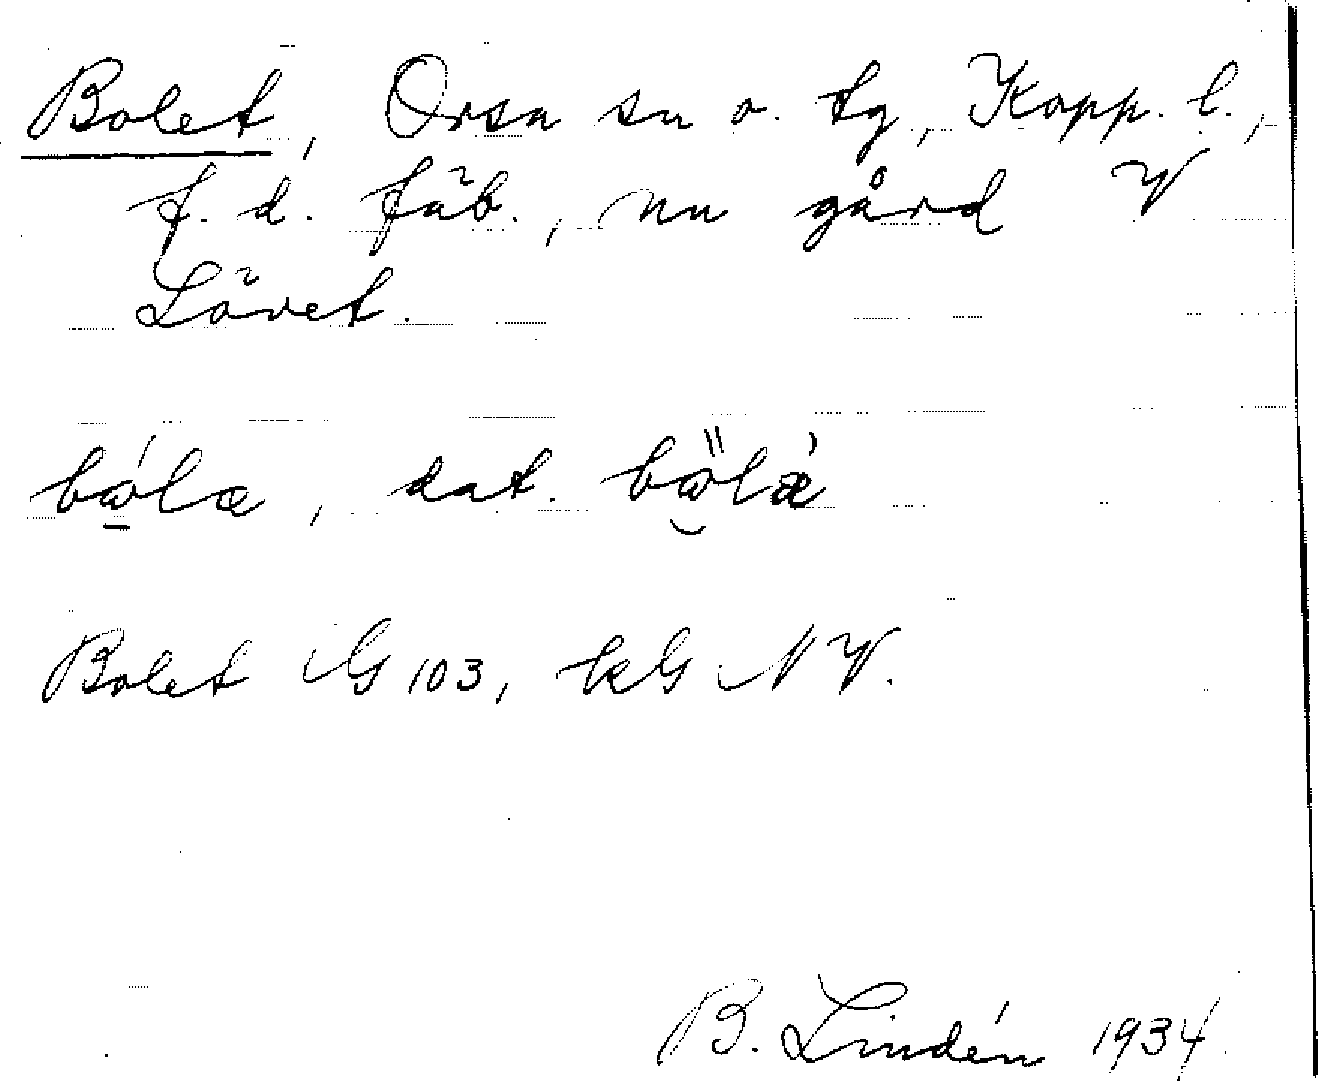 Bolet, Orsa sn o. tg, Kopp. l.,
f. d. fäb., nu gård V
Lövet.
bώ̱læ, dat. bω̮̋læ̀
Bolet G 103, kG NV.
B. Lindén 1934